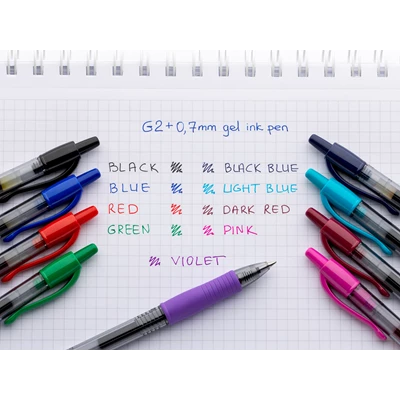 G2+0,7mm gel ink pen
BLACK BLACK BLUE
BLUE LIGHT BLUE
RED DARK RED
GREEN PINK
VIOLET